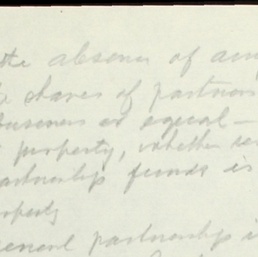 the absence of any
shares of partners
business as equal —
property, whether re
partnership funds is
property
general partnership i